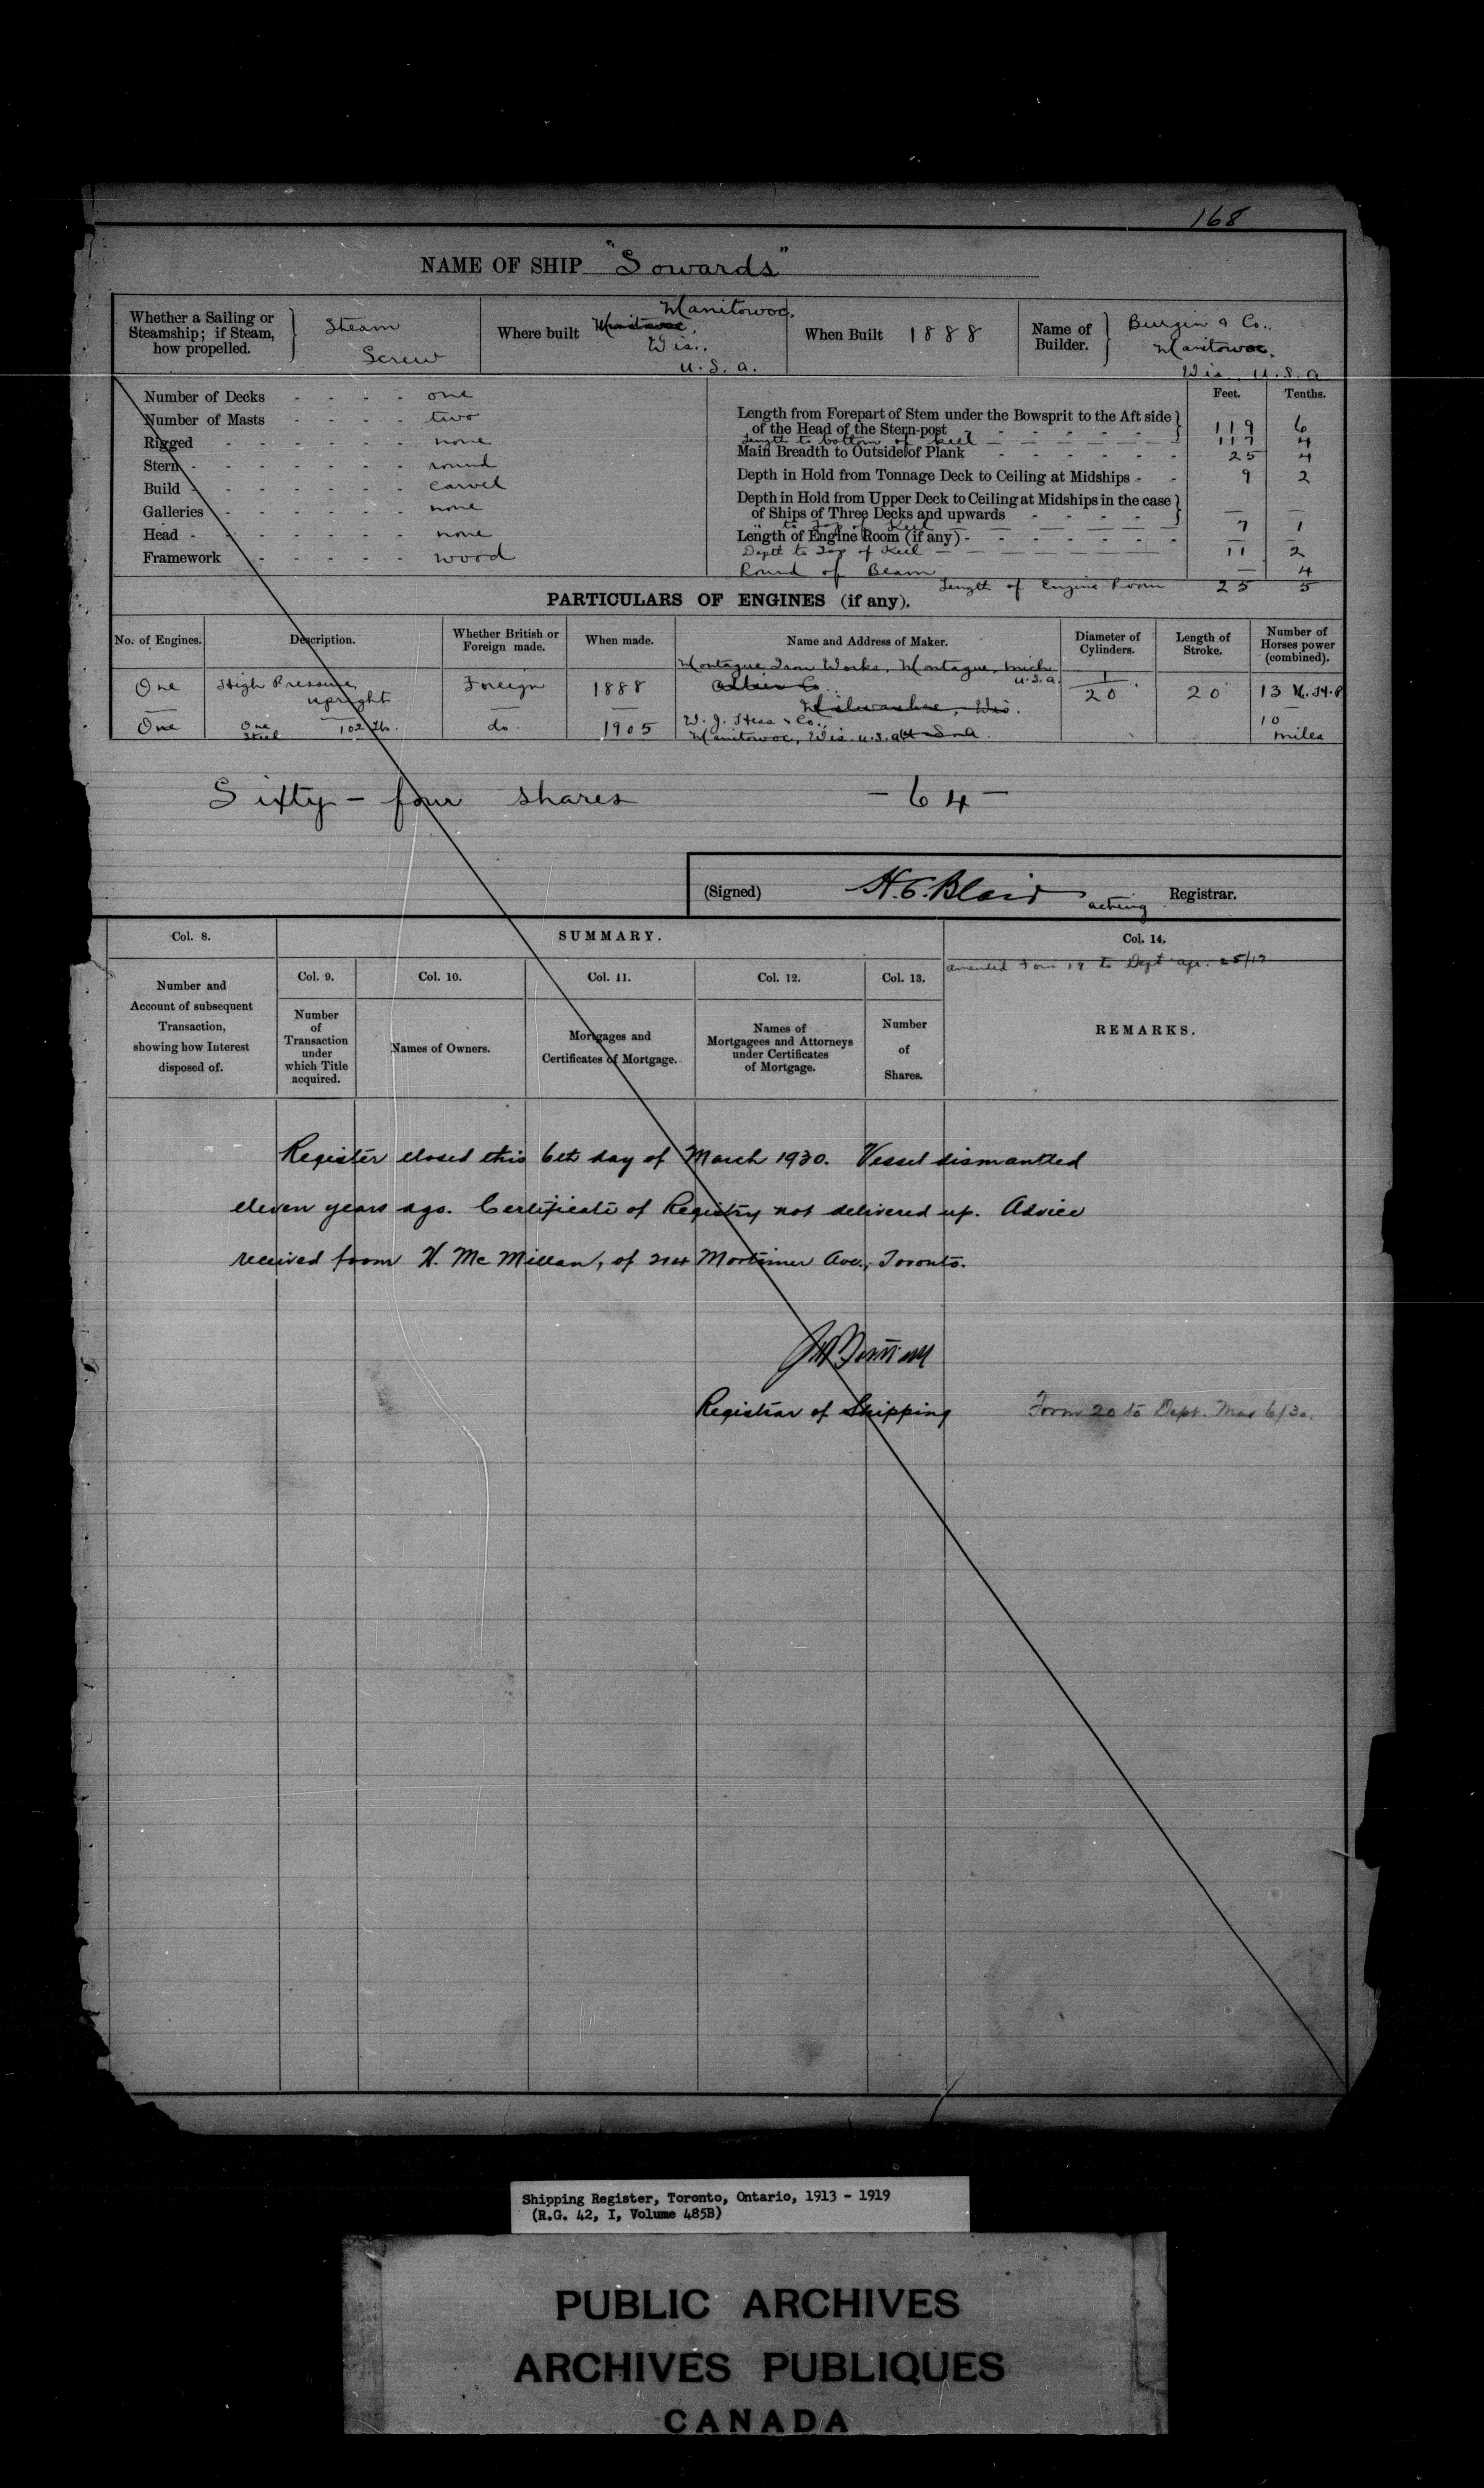 168
NAME OF SHIP "Sowards"
Whether a Sailing or Steamship; if Steam, how propelled. } Steam Screw
Where built Manitowoc, Manitowoc, Wis., U.S.A.
When Built 1888
Name of Builder. } Burgin & Co., Manitowoc, Wis. U.S.A
Feet. Tenths.
Number of Decks - - - - one
Number of Masts - - - - two
Rigged - - - - - - none
Stern - - - - - - - round
Build - - - - - - - carvel
Galleries - - - - - - none
Head - - - - - - - none
Framework - - - - - wood
Length from Forepart of Stem under the Bowsprit to the Aft side
of the Head of the Stern-post - - - - - - 119 6
Length to bottom of keel — — — — 117 4
Main Breadth to Outside of Plank - - - - - - 25 4
Depth in Hold from Tonnage Deck to Ceiling at Midships - - 9 2
Depth in Hold from Upper Deck to Ceiling at Midships in the case
of Ships of Three Decks and upwards - - - - — —
" to Top of Keel — — — — 7 1
Length of Engine Room (if any) - - - - - - - — —
Depth to Top of Keel — — — — — 11 2
Round of Beam — 4
Length of Engine Room 25 5
PARTICULARS OF ENGINES (if any).
No. of Engines. Description. Whether British or Foreign made. When made. Name and Address of Maker. Diameter of Cylinders. Length of Stroke. Number of Horses power (combined).
Montague Iron Works, Montague, Mich U.S.A.
One High Pressure, upright Foreign 1888 Co., Milwaukee, Wis. 1 20 20 13 N.H.P
One One Steel 102 lb. do. 1905 W. J. Hess & Co., Manitowoc, Wis. U.S.A 10 miles
Sixty-four shares - 64 -
(Signed) H.C. Blair acting Registrar.
Col. 8.
SUMMARY.
Col. 14.
amended Form 19 to Dept Apr. 25/17
Col. 9. Col. 10. Col. 11. Col. 12. Col. 13.
Number and
Account of subsequent
Transaction,
showing how Interest
disposed of.
Number
of
Transaction
under
which Title
acquired.
Names of Owners.
Mortgages and
Certificates of Mortgage.
Names of
Mortgagees and Attorneys
under Certificates
of Mortgage.
Number
of
Shares.
REMARKS.
Register closed this 6th day of March 1930. Vessel dismantled
eleven years ago. Certificate of Registry not delivered up. Advice
received from H. McMillan, of Mortimer Ave., Toronto.
Registrar of Shipping Form 20 to Dept. Mar 6/30.
Shipping Register, Toronto, Ontario, 1913 - 1919
(R.G. 42, I, Volume 485B)
PUBLIC ARCHIVES
ARCHIVES PUBLIQUES
CANADA